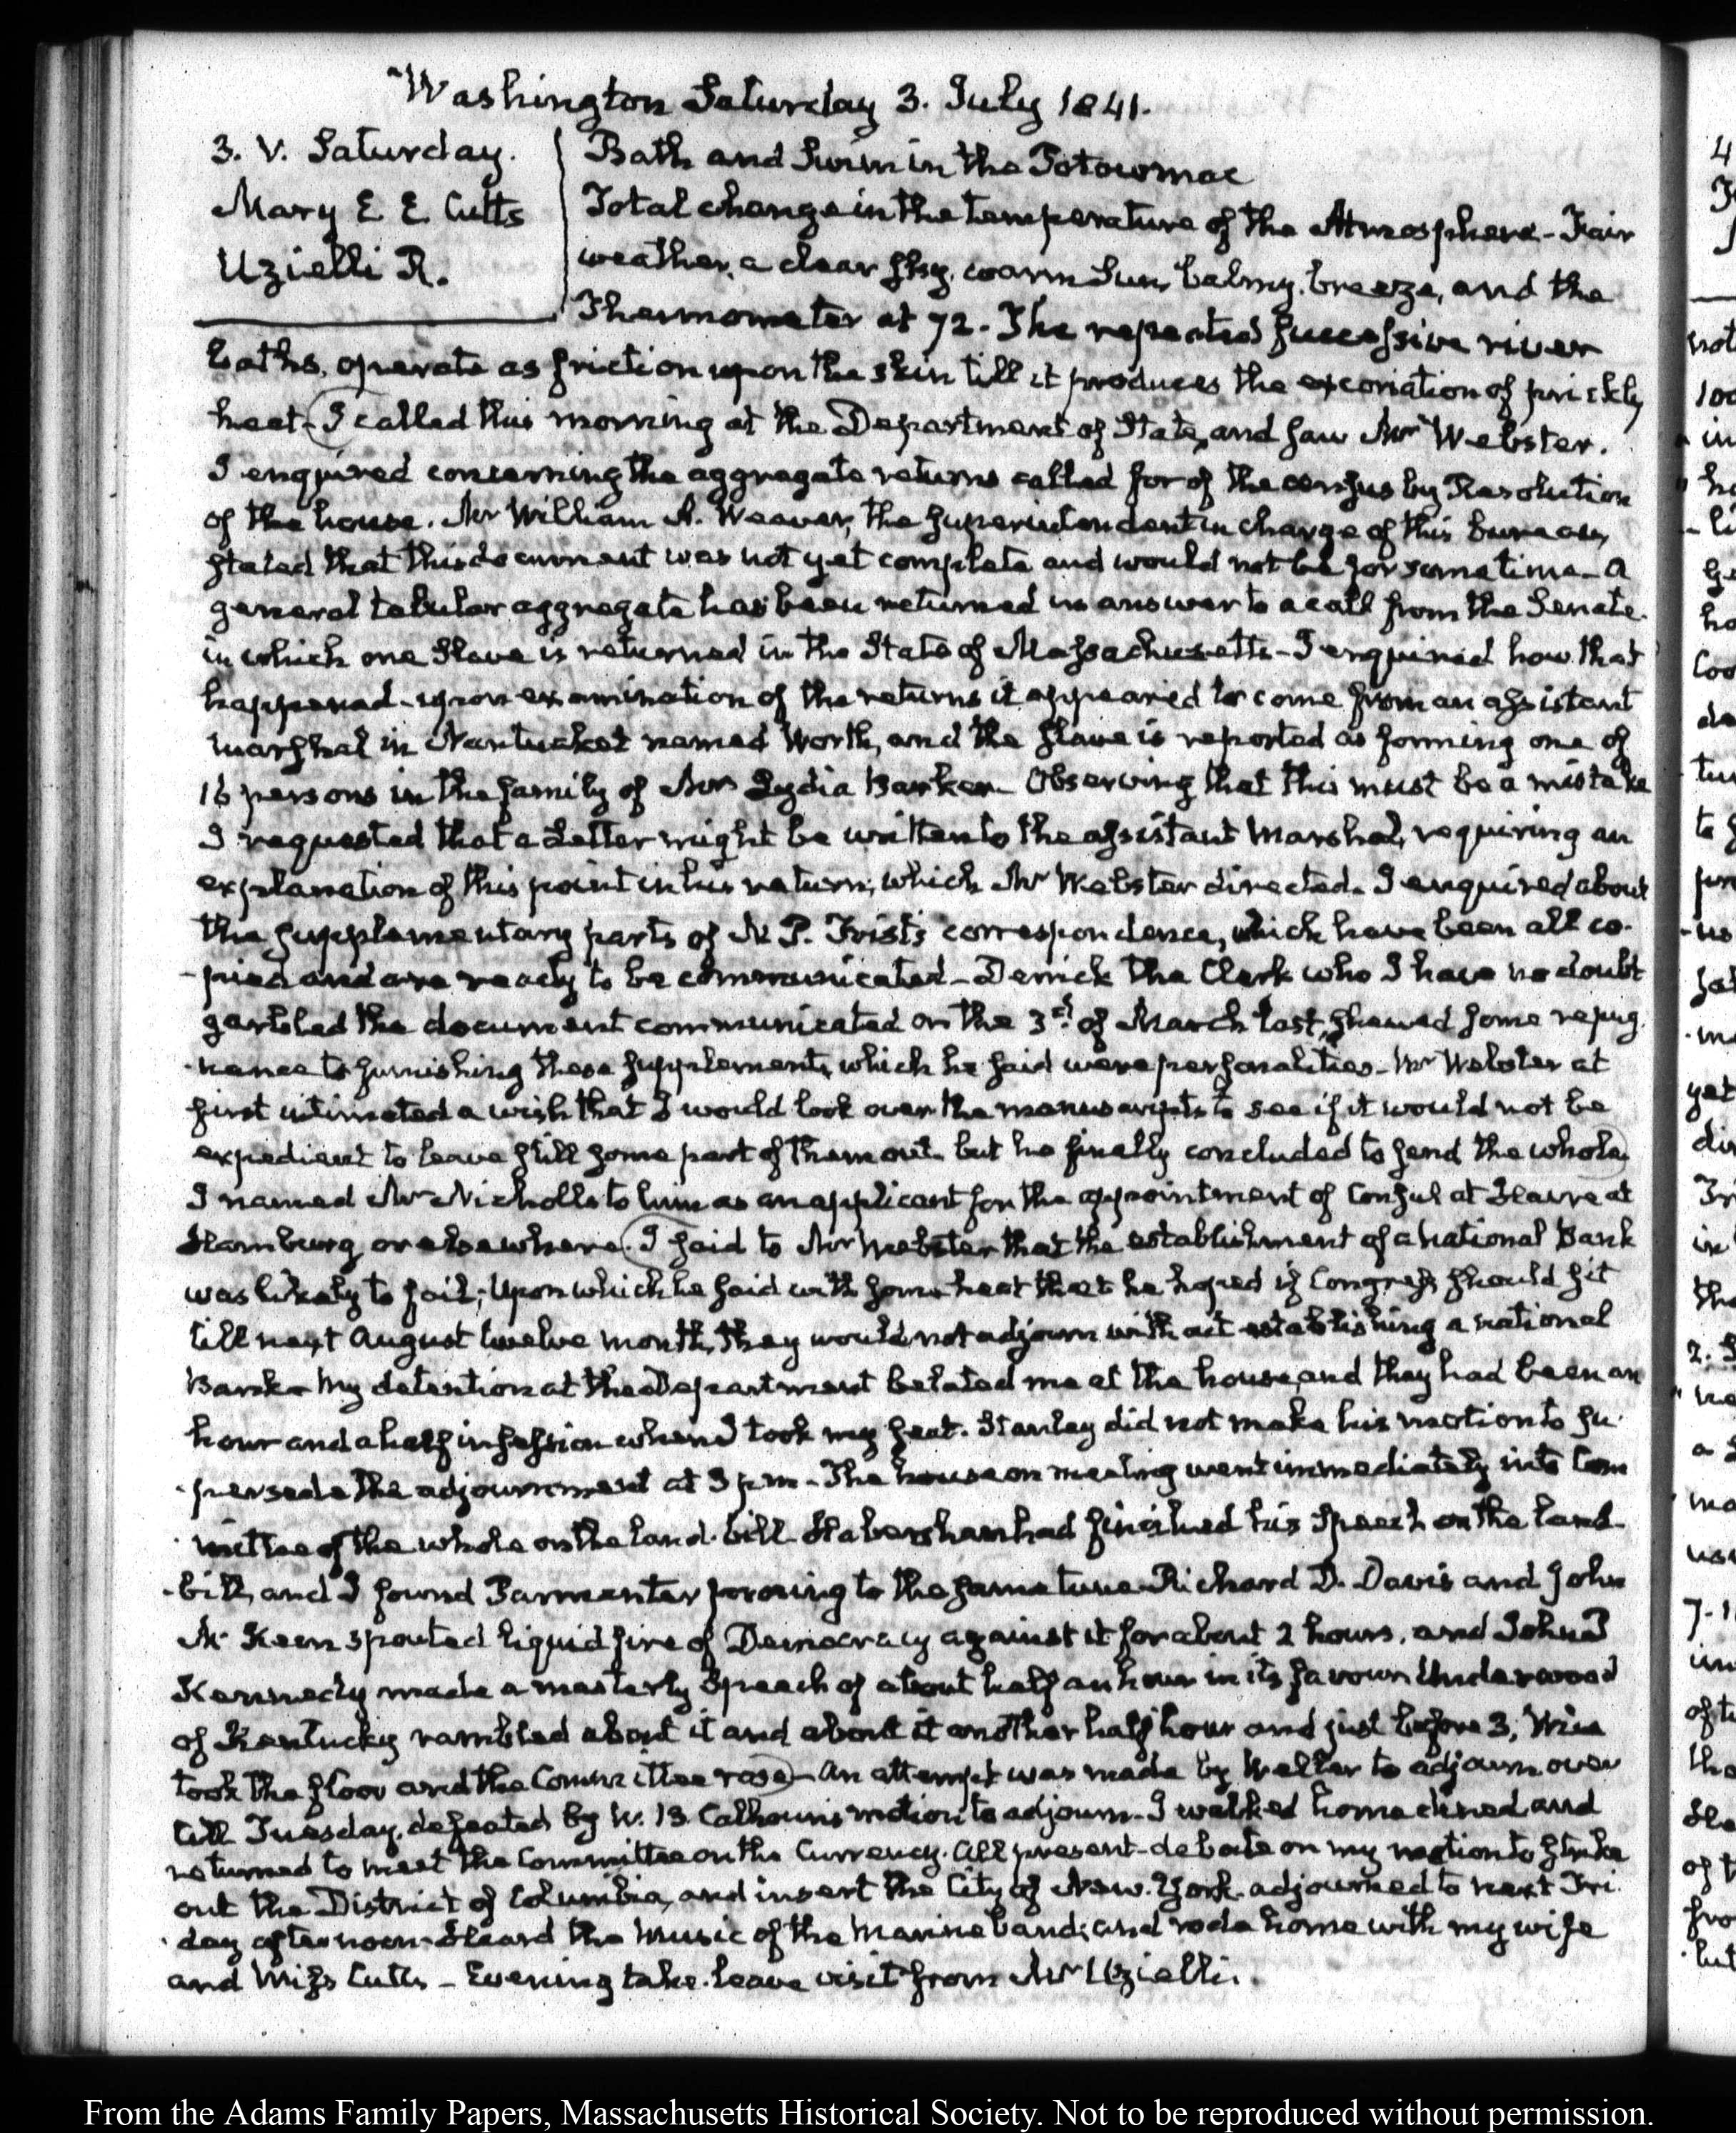 Washington Saturday 3. July 1841.
3. V. Saturday.
Mary E E Cutts
Uzielli R.
Bath and Swim in the Potowmac
Total change in the temperature of the Atmosphere - Fair
weather, a clear sky, warm Sun, balmy breeze, and the
Thermometer at 72. The repeated successive river
baths, operate as friction upon the skin till it produces the excoriation of prickly
heat - I called this morning at the Department of State, and saw Mr Webster.
I enquired concerning the aggregate returns called for of the census by Resolution
of the house. Mr William A. Weaver, the Superintendent in charge of this bureau,
stated that this document was not yet complete and would not be for some time - A
general tabular aggregate has been returned in answer to a call from the Senate.
in which one Slave is returned in the State of Massachusetts - I enquired how that
happened - upon examination of the returns it appeared to come from an assistant
marshal in Nantucket named Worth, and the slave is reported as forming one of
16 persons in the family of Mrs Lydia Barker - Observing that this must be a mistake
I requested that a Letter might be written to the assistant Marshal, requiring an
explanation of this point in his return; which Mr Webster directed. I enquired about
the supplementary parts of N. P. Trist's correspondence, which have been all co-
-pied and are ready to be communicated - Derrick the Clerk who I have no doubt
garbled the document communicated on the 3d. of March last, shewed some repug-
-nance to furnishing these supplements, which he said were personalities - Mr Webster at
first intimated a wish that I would look over the manuscripts to see if it would not be
expedient to leave still some part of them out - but he finally concluded to send the whole
I named Mr Nicholls to him as an applicant for the appointment of Consul at Havre at
Hamburg or elsewhere. I said to Mr Webster that the establishment of a national Bank
was likely to fail; Upon which he said with some heat that he hoped if Congress should sit
till next August twelve month, they would not adjourn without establishing a national
Bank - My detention at the Department belated me at the house, and they had been an
hour and a half in session when I took my seat. Stanley did not make his motion to su-
-persede the adjournment at 3 p.m - The house on meeting went immediately into Com
-mittee of the whole on the land-bill - Habersham had finished his Speech on the land-
-bill, and I found Parmenter prosing to the same tune - Richard D. Davis and John
Mc Keon spouted liquid fire of Democracy against it for about 2 hours, and John P
Kennedy made a masterly Speech of about half an hour in its favour. Underwood
of Kentucky rambled about it and about it another half hour and just before 3, Wise
took the floor and the Committee rose - An attempt was made by Weller to adjourn over
till Tuesday, defeated by W. B. Calhoun's motion to adjourn - I walked home dined and
returned to meet the Committee on the Currency. All present - debate on my motion to strike
out the District of Columbia, and insert the City of New-York - adjourned to next Fri-
-day afternoon - Heard the Music of the Marine band; and rode home with my wife
and Miss Cutts - Evening take-leave visit from Mr Uzielli.
From the Adams Family Papers, Massachusetts Historical Society. Not to be reproduced without permission.